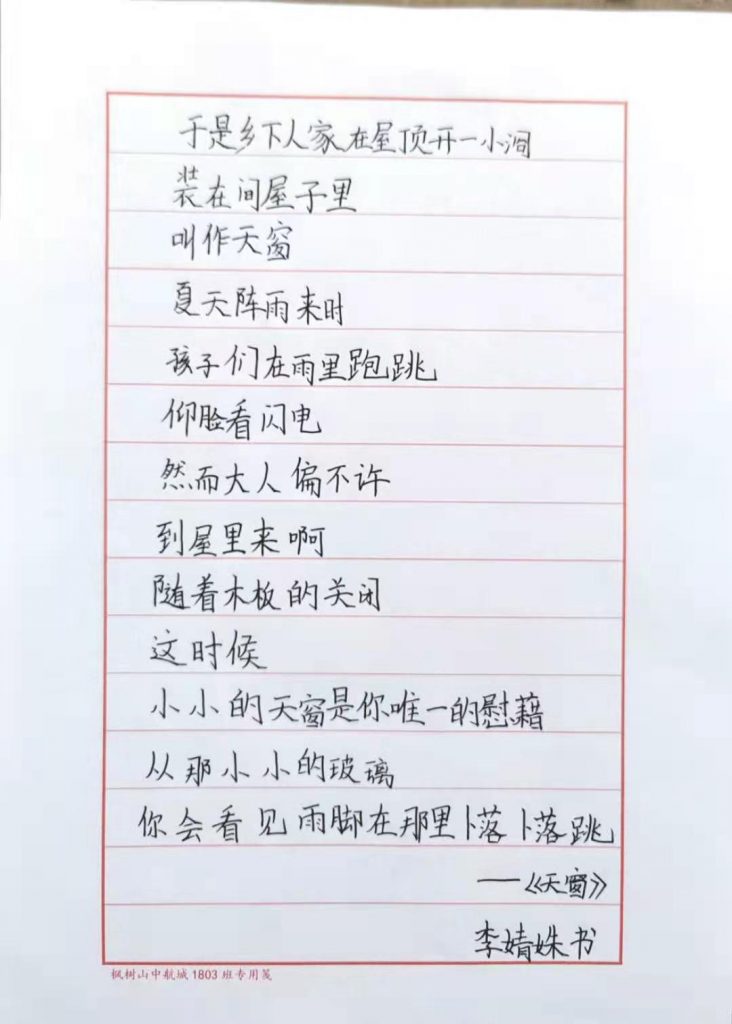 于是乡下人家在屋顶开一小洞
装在间屋子里
叫作天窗
夏天阵雨来时
孩子们在雨里跑跳
仰脸看闪电
然而大人偏不许
到屋里来啊
随着木板的关闭
这时候
小小的天窗是你唯一的慰藉
从那小小的玻璃
你会看见雨脚在那里卜落卜落跳
——《天窗》
李婧姝书
枫树山中航城1803班专用笺